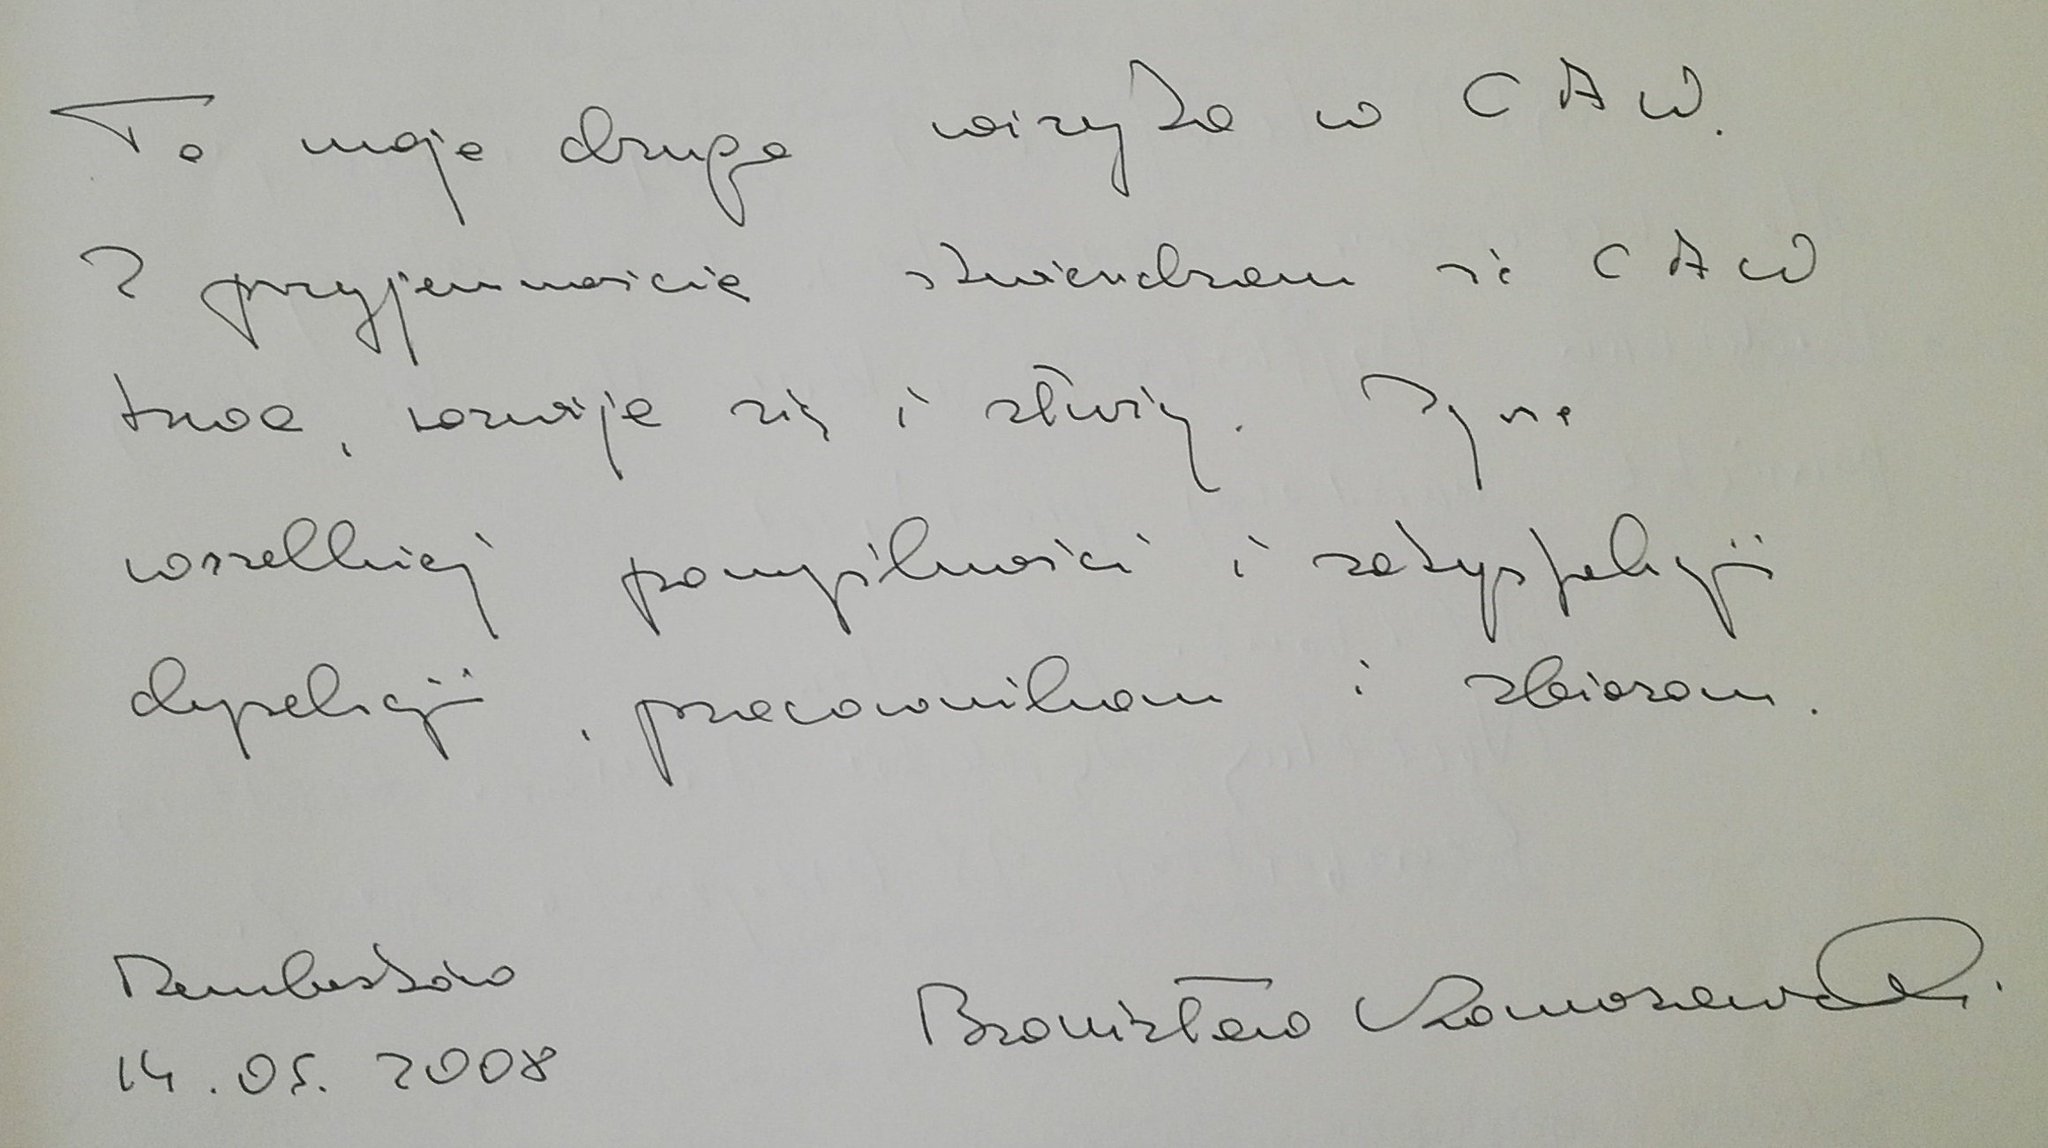 To moja druga wizyta w CAW.
Z przyjemnością stwierdzam że CAW
trwa, rozwija się i służy. Życzę
wszelkiej pomyślności i satysfakcji
dyrekcji, pracownikom i zbiorom.
Rembertów
14.05.2008
Bronisław Komorowski